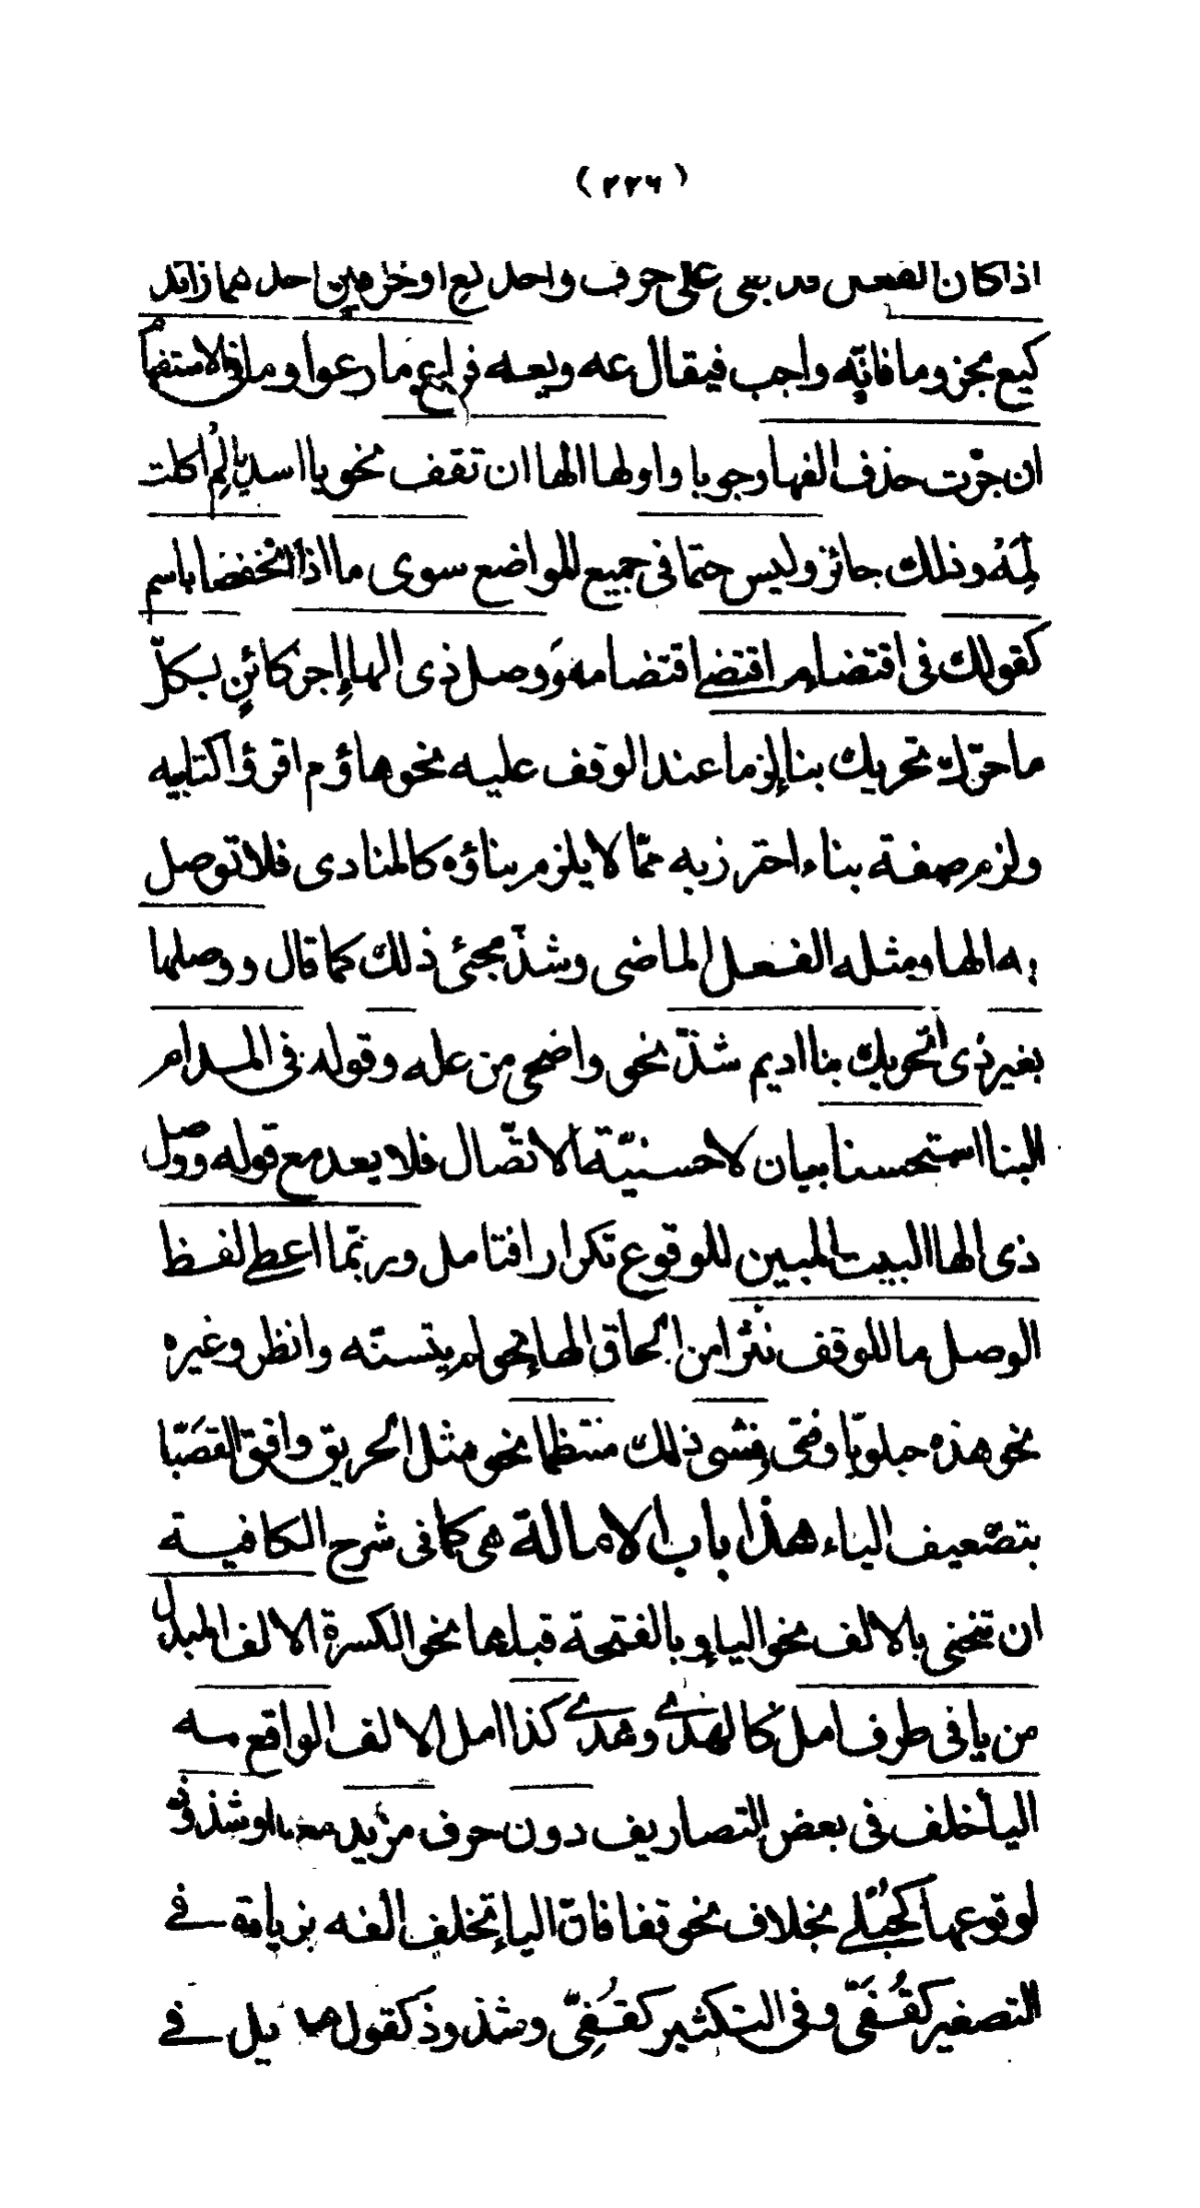 (٢٢٦)
اذا كان الفعل قد بقى على حرف واحد كع او حرفين احدهما زائد
كيع مجزوما فانه واجب فيقال عه ويعه فراع ما رعوا وما فى الاستفهام
ان جرّت حذف الفها وجوبا واولها الها ان تقف نحو يا اسديا لم اكلت
لمه وذلك جائز وليس حتما فى جميع المواضع سوى ما اذا انخفضا باسم
كقولك فى اقتضاء م اقتضى اقتضاء مه ووصل ذى الهاء اجز كائن بكلّ
ما حرّك تحريك بناء لزما عند الوقف عليه نحو هاؤم اقرؤا كتابيه
ولزم صفة بناء احترز به عمّا لا يلزم بناؤه كالمنادى فلا توصل
به الها ومثله الفعل الماضى وشذّ مجئ ذلك كما قال ووصلها
بغير ذى تحريك بنا اديم شذّ نحو واضحى من عله وقوله فى المدام
البنا استحسنا بيان لاحسنيّة الاتّصال فلا يعد مع قوله ووصل
ذى الها البيت المبين للوقوع تكرارا فتامل وربّما اعطى لفظ
الوصل ما للوقف نثرا من الحاق الهاء نحو لم يتسنّه وانظر وغيره
نحو هذه حبلو يا فتى وفشى ذلك منتظما نحو مثل الحريق وافق القصبّا
بتضعيف الباء هذا باب الامالة هى كما فى شرح الكافية
ان تنحى بالالف نحو الياء وبالفتحة قبلها نحو الكسرة الالف المبدل
من يا فى طرف امل كالهدى وهدى كذا امل الالف الواقع منه
اليا خلف فى بعض التصاريف دون حرف مزيد معها او شذوذ
لوقوعها كحبلى بخلاف نحو قفا فانّ الياء تخلف الفه بزيادة فى
التصغير كقُفَىّ وفى التكثير كقُفِىّ وشذوذ كقول هذيل فى